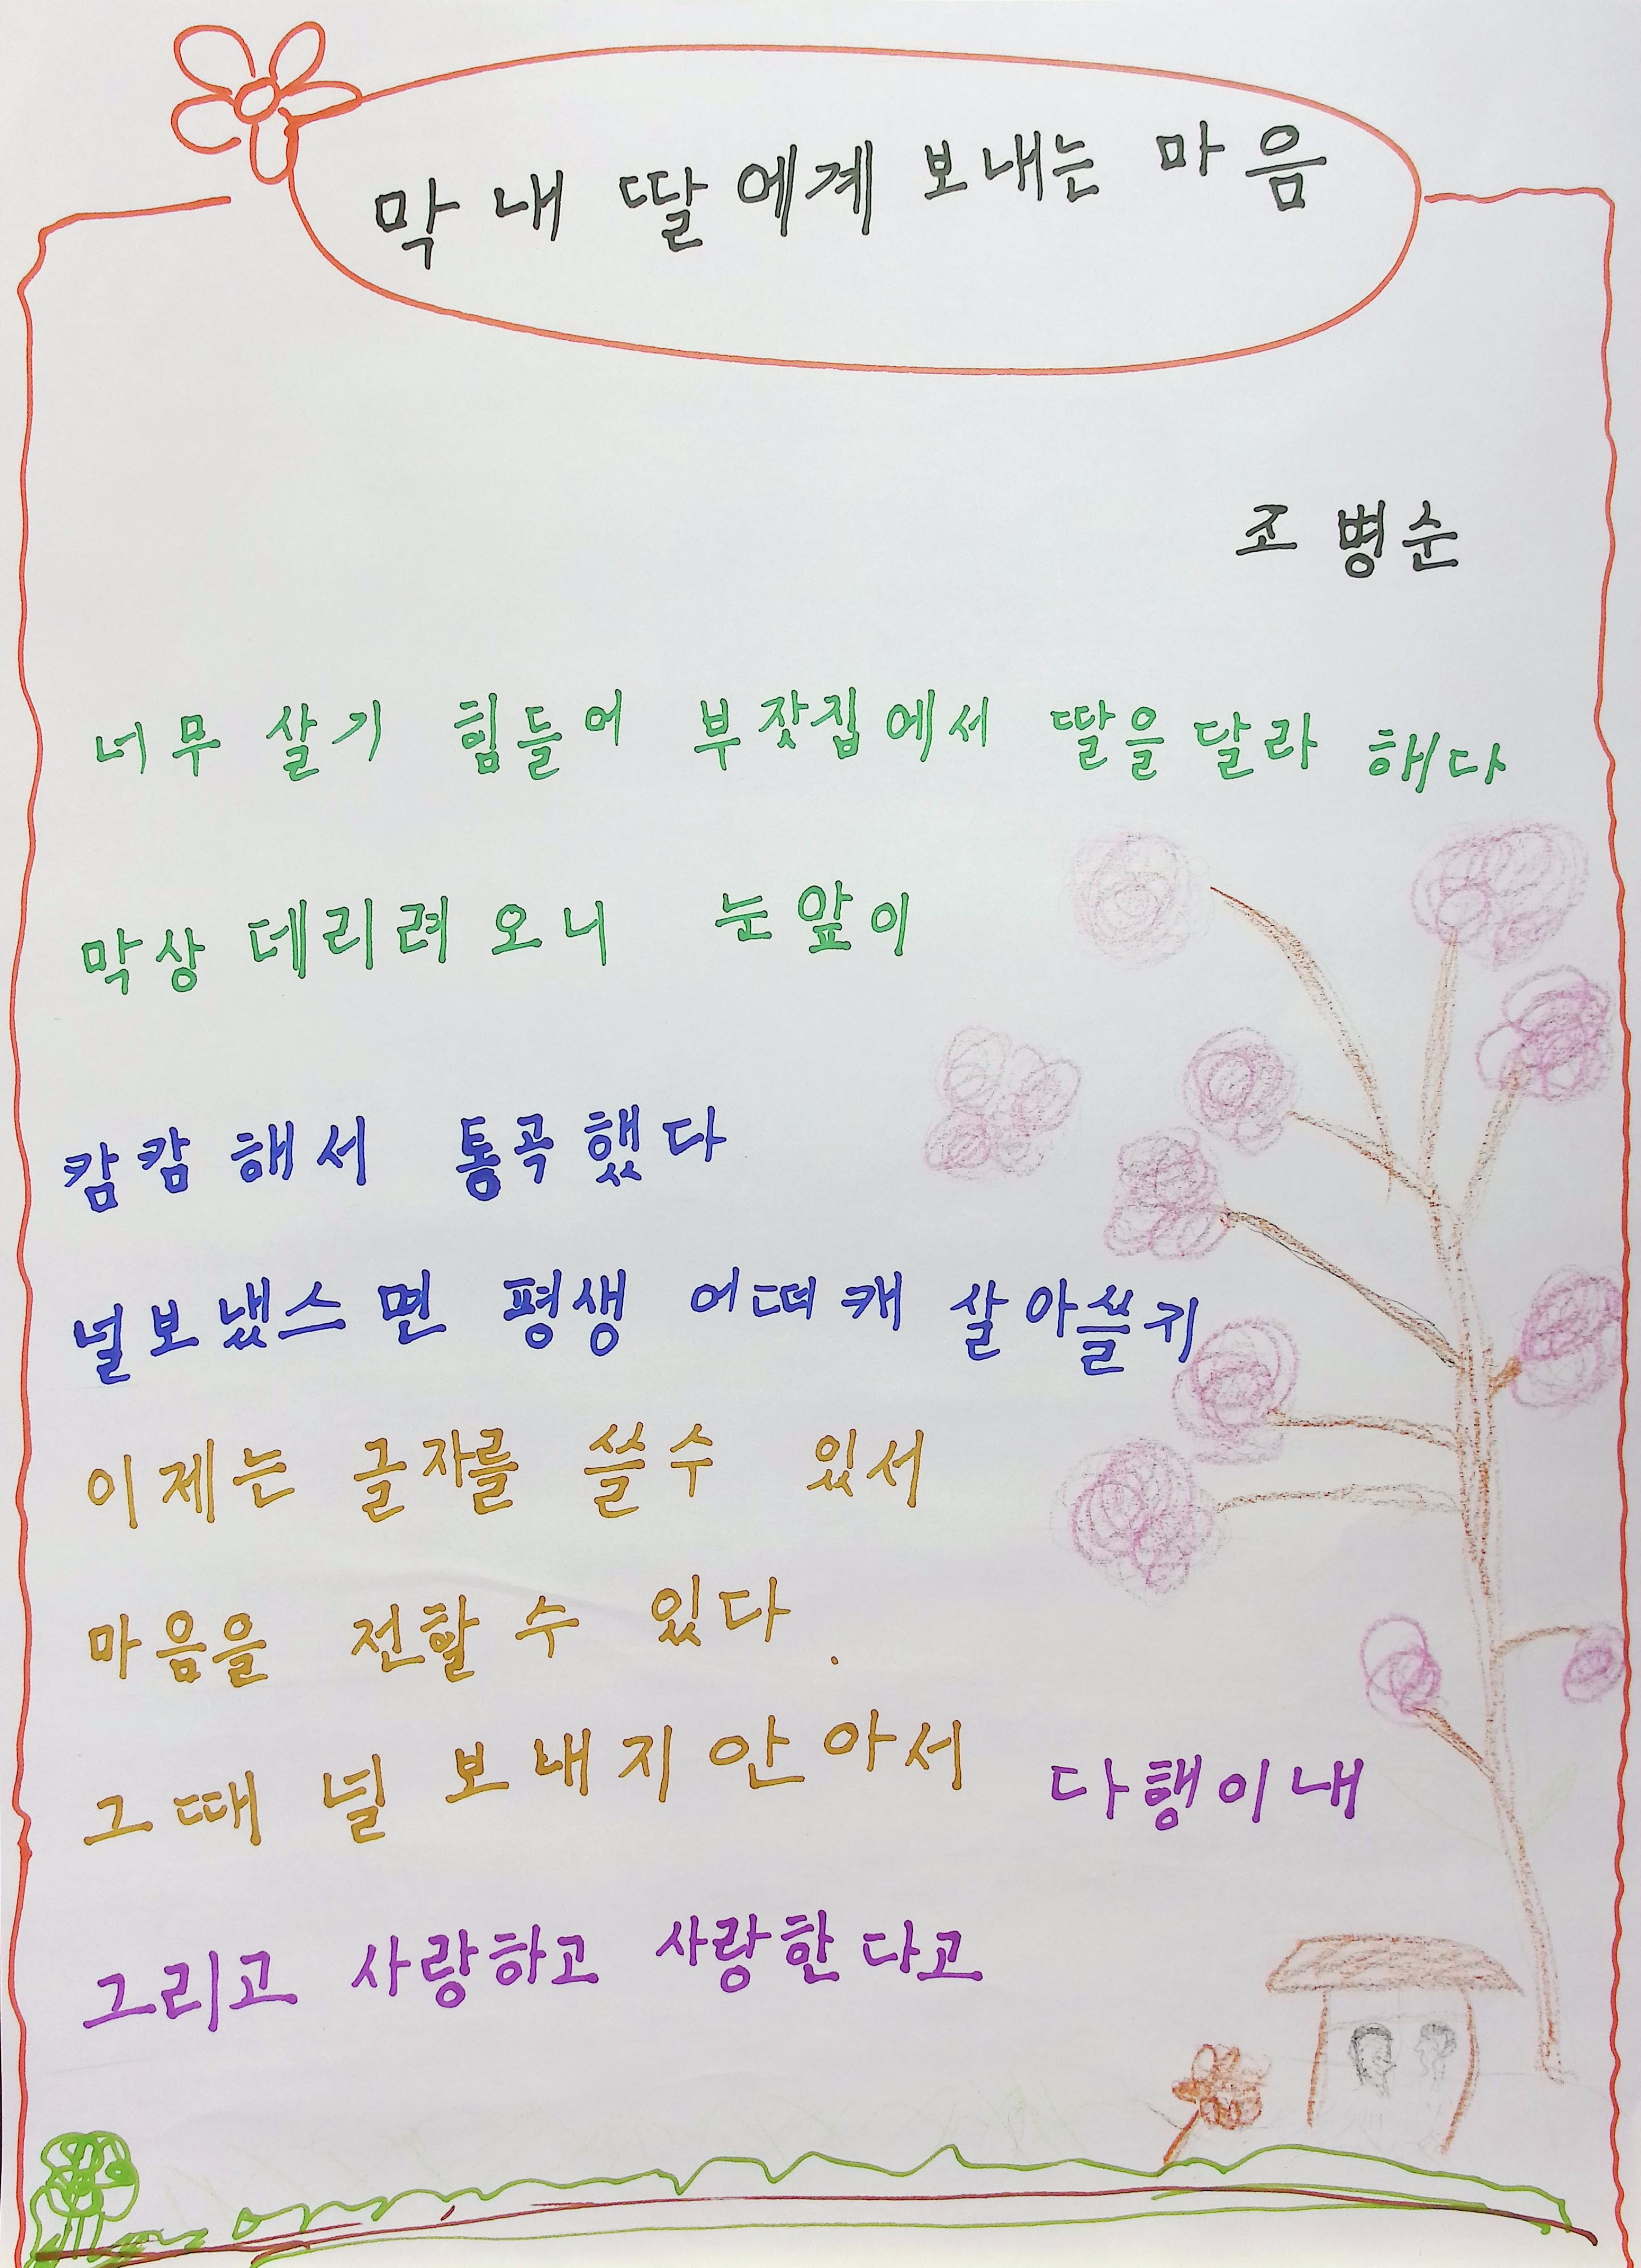 막내 딸에게 보내는 마음
조병순
너무 살기 힘들어 부잣집에서 딸을 달라 해다
막상 데리려 오니 눈앞이
캄캄해서 통곡했다
널 보냈스면 평생 어떠캐 살아쓸기
이제는 글자를 쓸수 있서
마음을 전할 수 있다.
그때 널 보내지 안아서 다행이내
그리고 사랑하고 사랑한다고